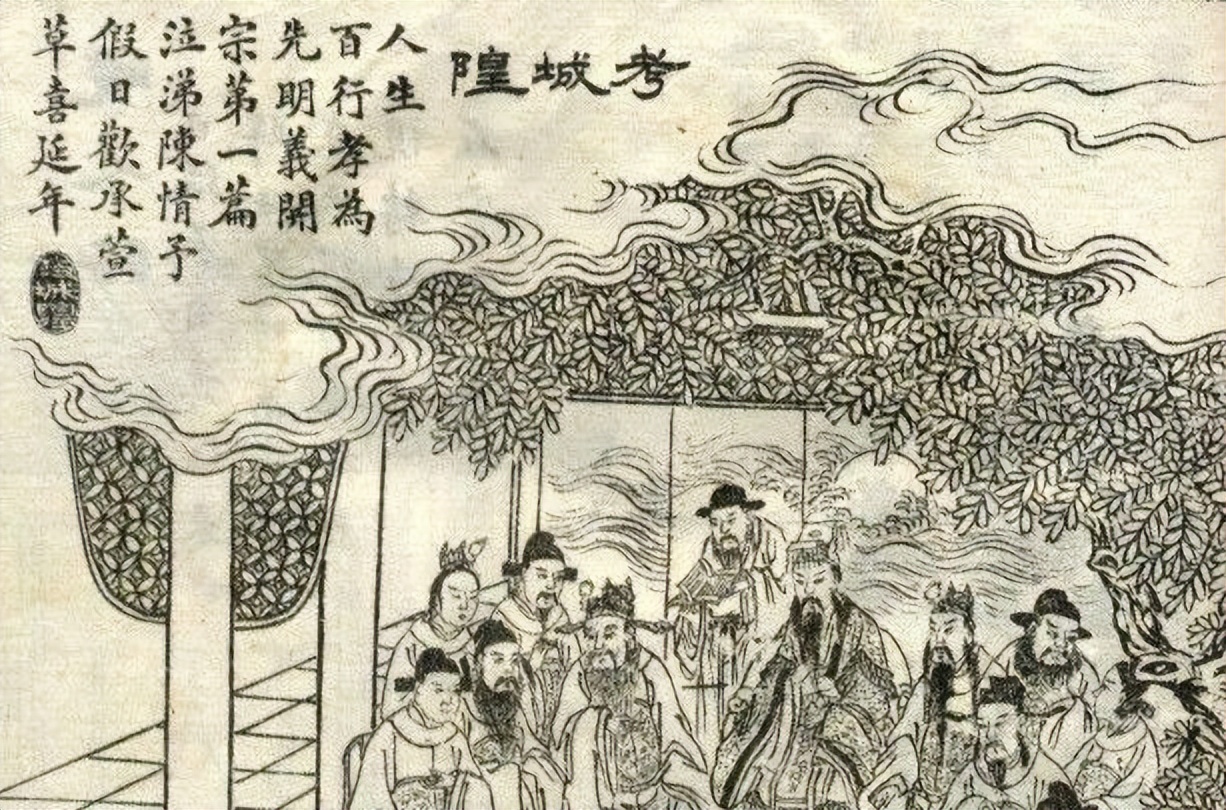 考城隍
人生
百行孝為
先明義開
宗第一篇
泣涕陳情予
假日歡承萱
草喜延年